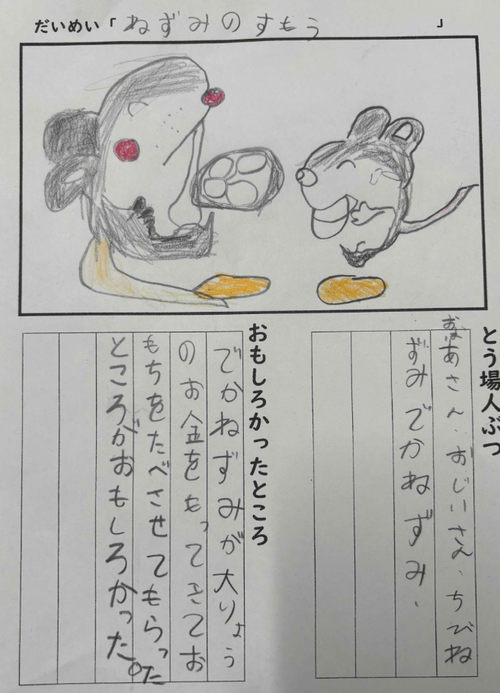 だいめい「ねずみのすもう」
とう場人ぶつ
おばあさん、おじいさん、ちびね
ずみでかねずみ、
おもしろかったところ
でかねずみが大りょう
のお金をもってきてお
もちをたべさせてもらった
ところがおもしろかった。